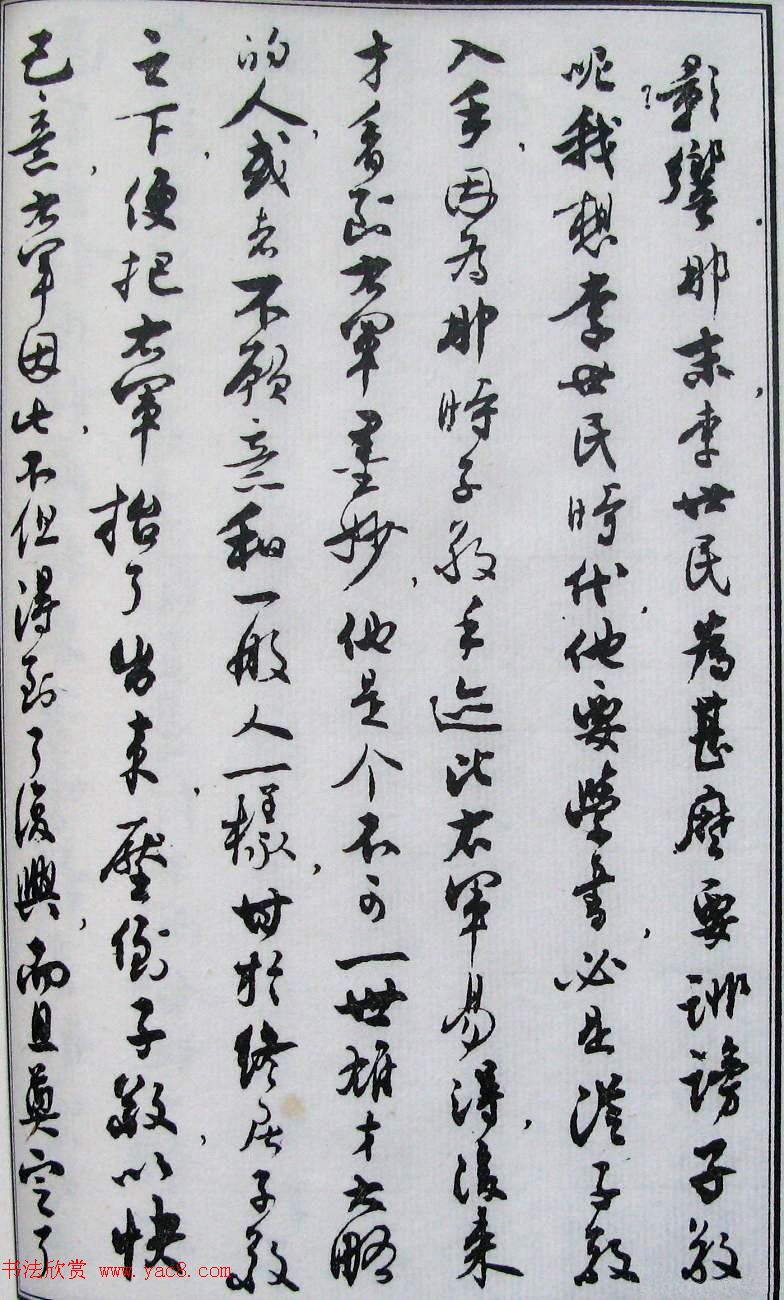 影響、那末、李世民為甚麼要誹謗子敬
呢?我想李世民時代、他要學書、必是從子敬
入手、因為那時子敬手迹比右軍易得、後來
才看到右軍墨妙、他是个不可一世雄才大略
的人、或者不願意和一般人一樣、甘於終居子敬
之下、便把右軍抬了出来、壓倒子敬、以快
己意、右軍因此、不但得到了復興、而且奠定了
书法欣赏 www.yac8.com